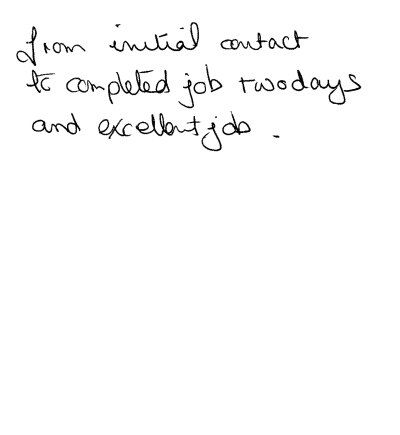 from initial contact
to completed job two days
and excellent job .